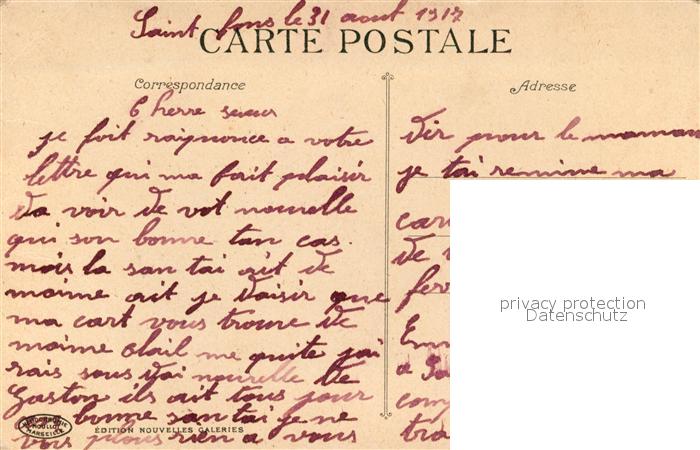 Saint fons le 31 aout 1917
CARTE POSTALE
Correspondance
Cherre seur
je fait raiponce a votre
lettre qui ma fait plaisir
da voir de vot nouvelle
qui son bonne tan cas.
mois la san tai ait de
maime ait je daisir que
ma cart vous trouve de
maime elail me quite jai
rais sous dai nouvelle de
Gaston ils ait tous jour
bonne san tai je ne
vois plous rien a vous
EDITION NOUVELLES GALERIES
MARSEILLE
Adresse
dir pour le maman
je tai remime ma
car
de
fer
Em
a Ga
com
tra
privacy protection
Datenschutz